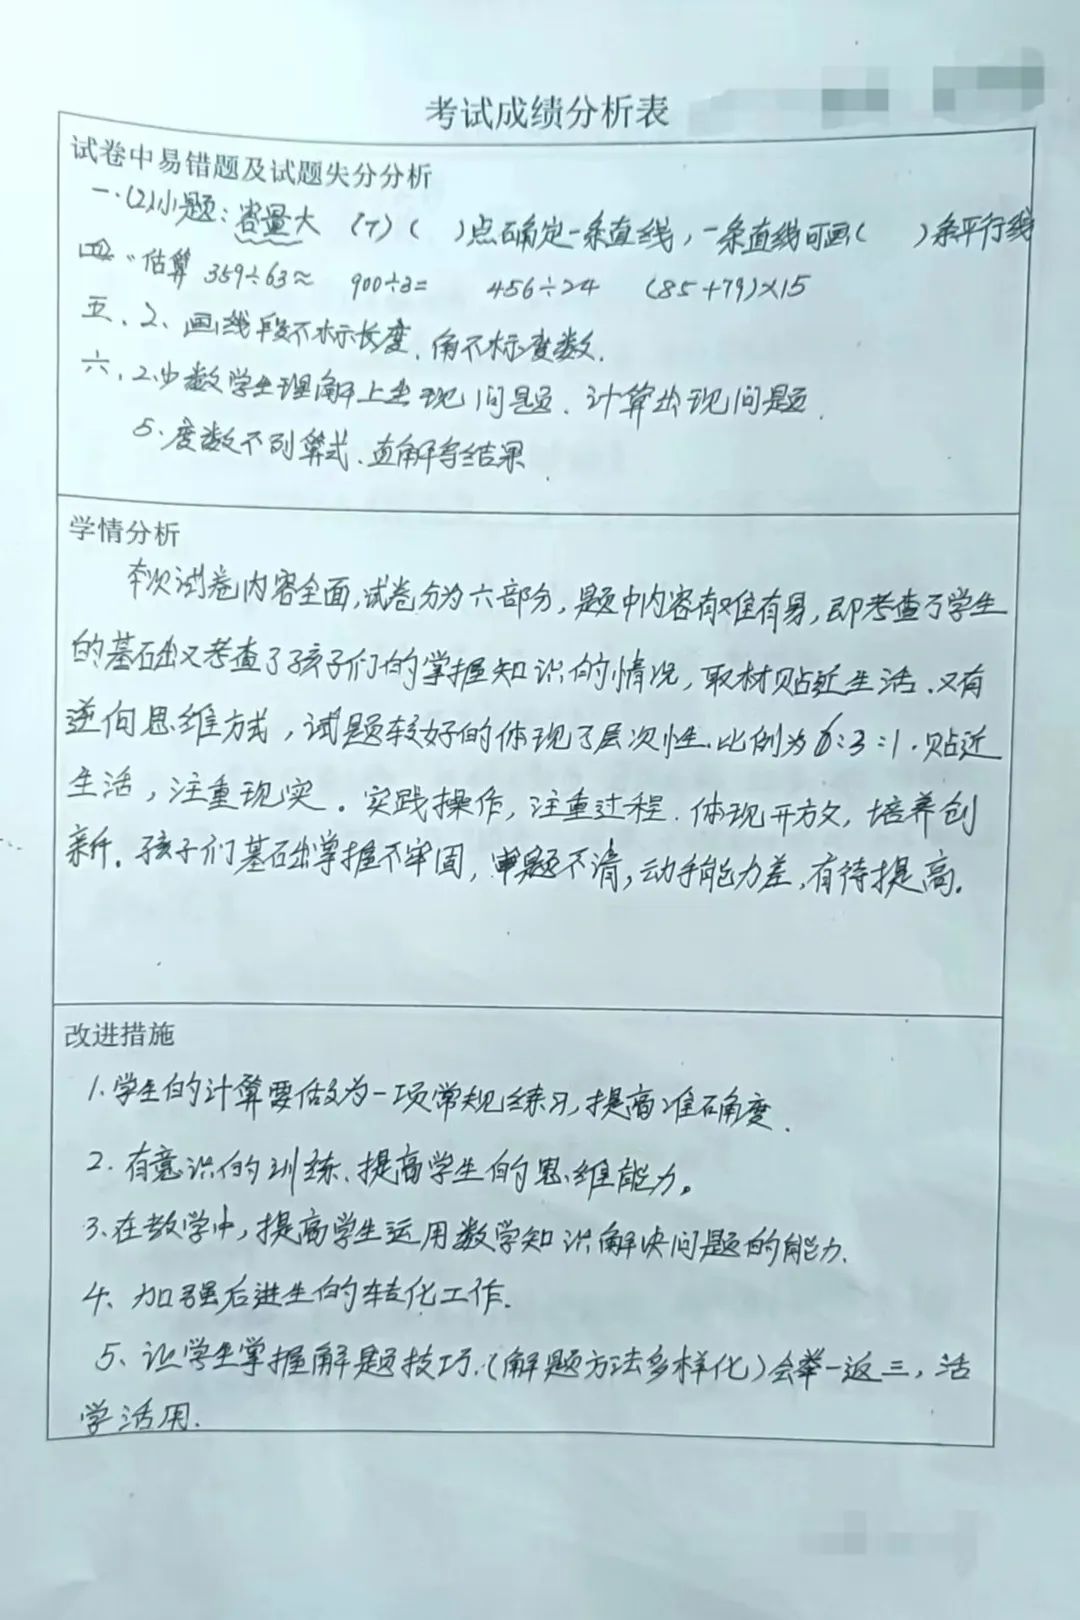 考试成绩分析表
试卷中易错题及试题失分分析
一.(2)小题:容量大 (7)( )点确定一条直线,一条直线可画( )条平行线
四、估算 359÷63≈ 900÷3= 456÷24 (85+79)×15
五、2、画线段不标长度、角不标度数.
六、2.少数学生理解上出现问题、计算出现问题.
5、度数不列算式、直解写结果
学情分析
本次试卷内容全面,试卷分为六部分,题中内容有难有易,即考查了学生
的基础又考查了孩子们的掌握知识的情况,取材贴近生活.又有
逆向思维方式,试题较好的体现了层次性.比例为6:3:1.贴近
生活,注重现实。实践操作,注重过程.体现开放,培养创
新.孩子们基础掌握不牢固,审题不清,动手能力差,有待提高.
改进措施
1.学生的计算要做为一项常规练习,提高准确度.
2.有意识的训练、提高学生的思维能力。
3.在教学中,提高学生运用数学知识解决问题的能力.
4、加强后进生的转化工作.
5、让学生掌握解题技巧.(解题方法多样化)会举一返三,活
学活用.